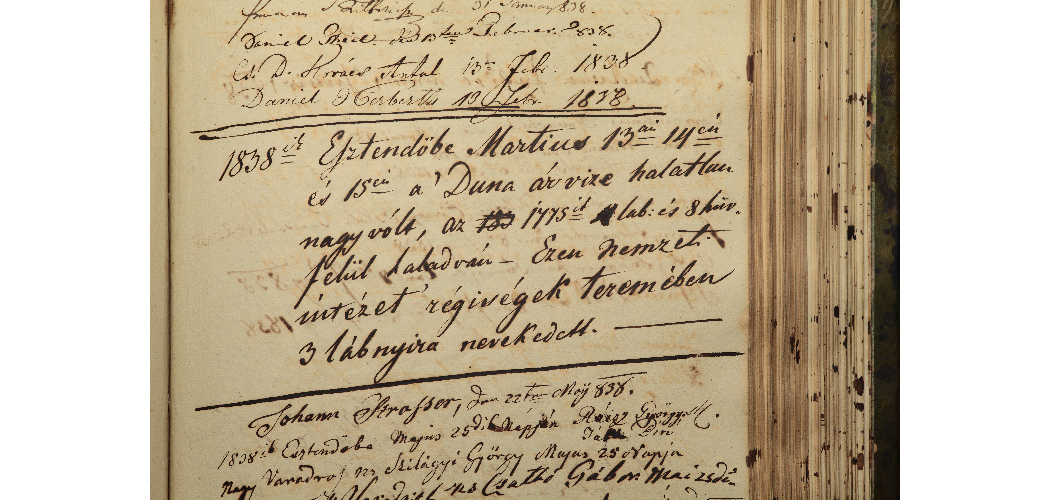 Daniel 13ten Februar 838.
Kovács Antal 13ik Febr. 1838
Daniel Herbertis 19 Febr. 1838.
1838ik Esztendőbe Martius 13ai 14én
és 15én a' Duna árvize halatlan
nagy vólt, az 183 1775ik 4 lab: és 8 hüv.
felül haladván – Ezen nemzeti
intézet' régiségek teremében
3 lábnyira nevekedett. —
Johann Strasser, den 22ten Maÿ 838.
1838ik Esztendőbe Majus 25dik Nápján Rácz György M.
Nagy Varadrol Szilágyi György Majus 25 Napja
Csatkó Gábor Mai 25dik